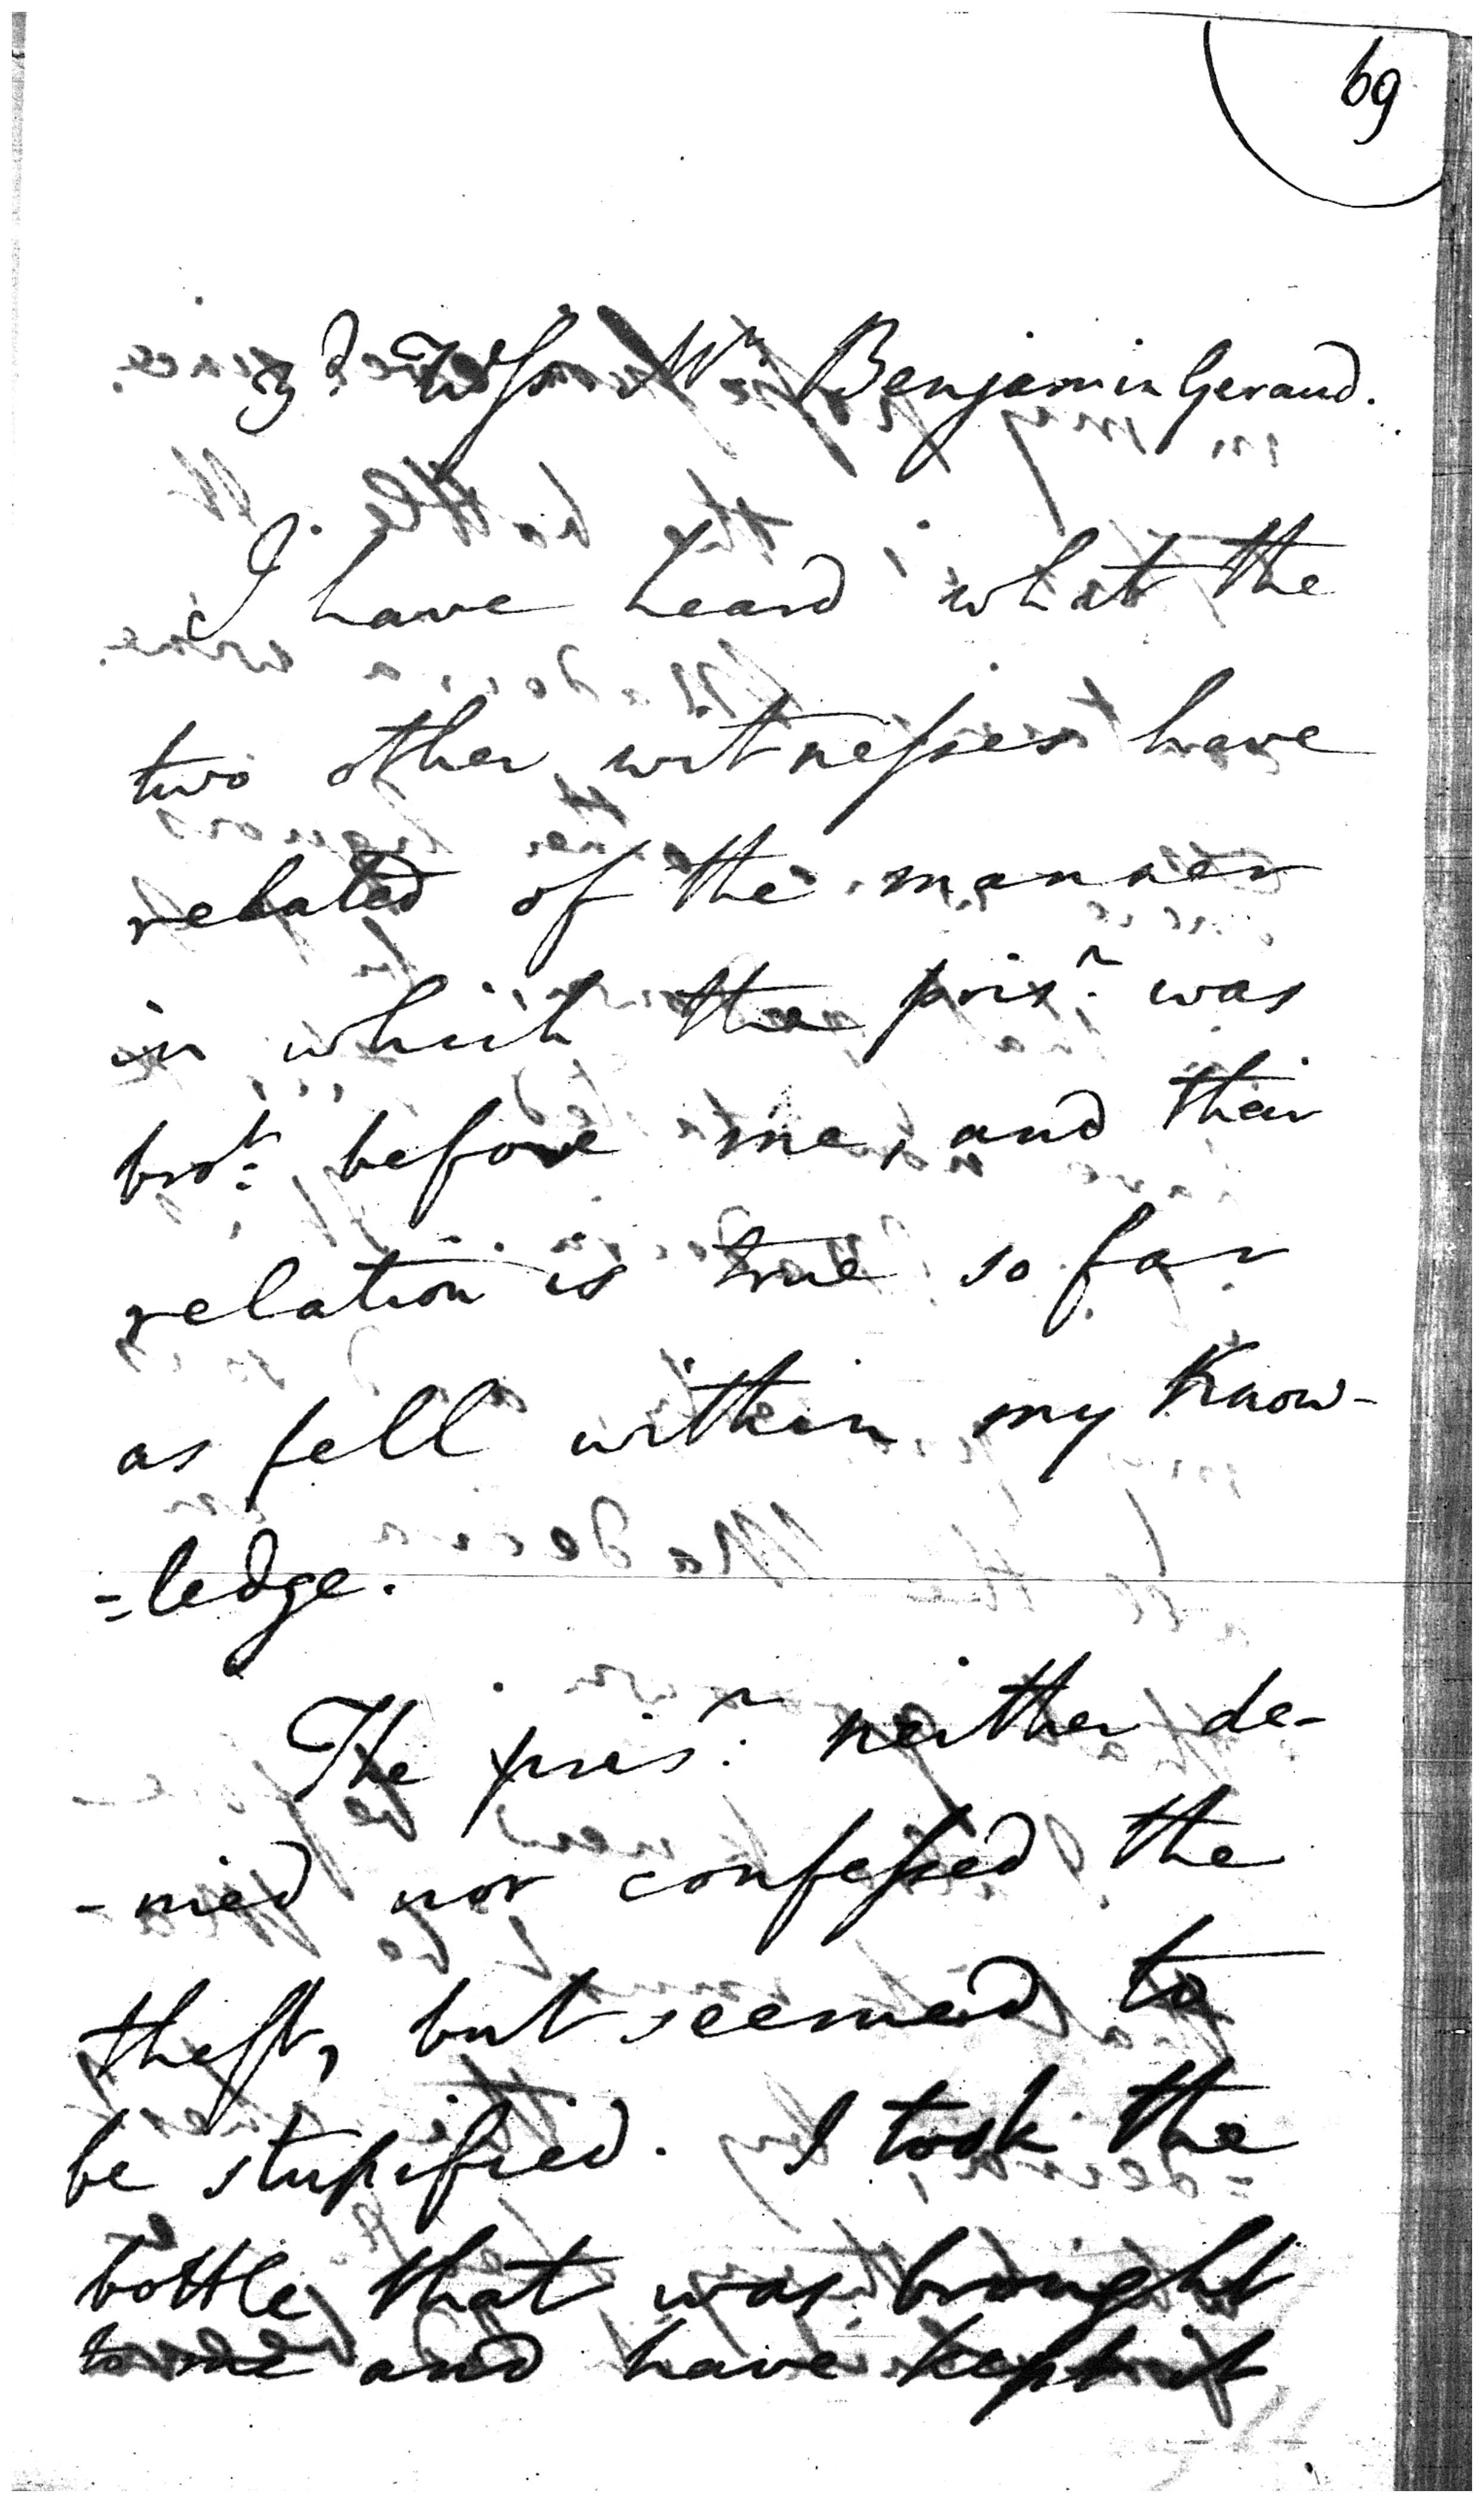 69
3d Witness Wm Benjamin Geraud.
I have heard what the
two other witnesses have
related of the manner
in which the prisr. was
brot. before me, and their
relation is true so far
as fell within my know-
=ledge.
The prisr. neither de-
-nied nor confessed the
theft, but seemed to
be stupified. I took the
bottle that was brought
to me and have kept it